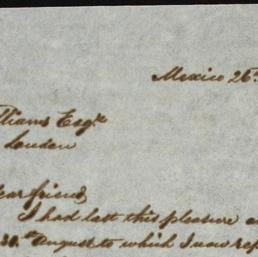 Mexico 26th
lliams Esqre
London
ear friend,
I had last this pleasure
30th August to which I now